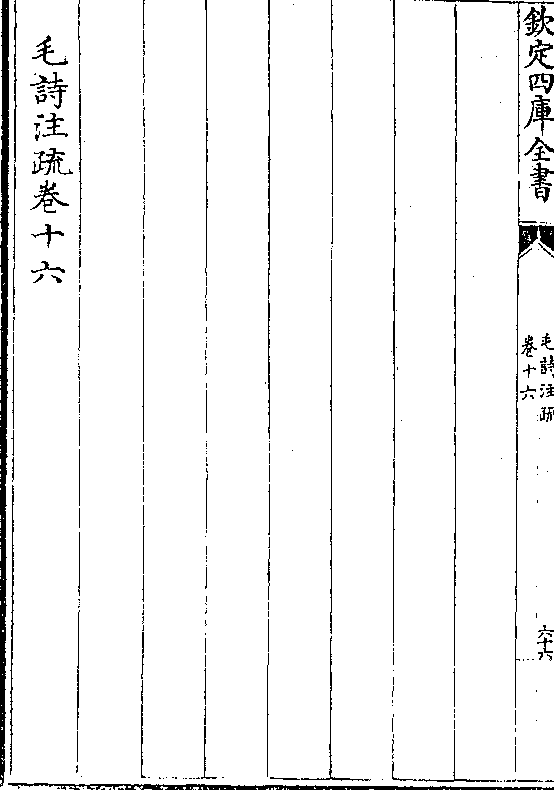 欽定四庫全書
毛詩注疏
卷十六
六十六
毛詩注疏卷十六